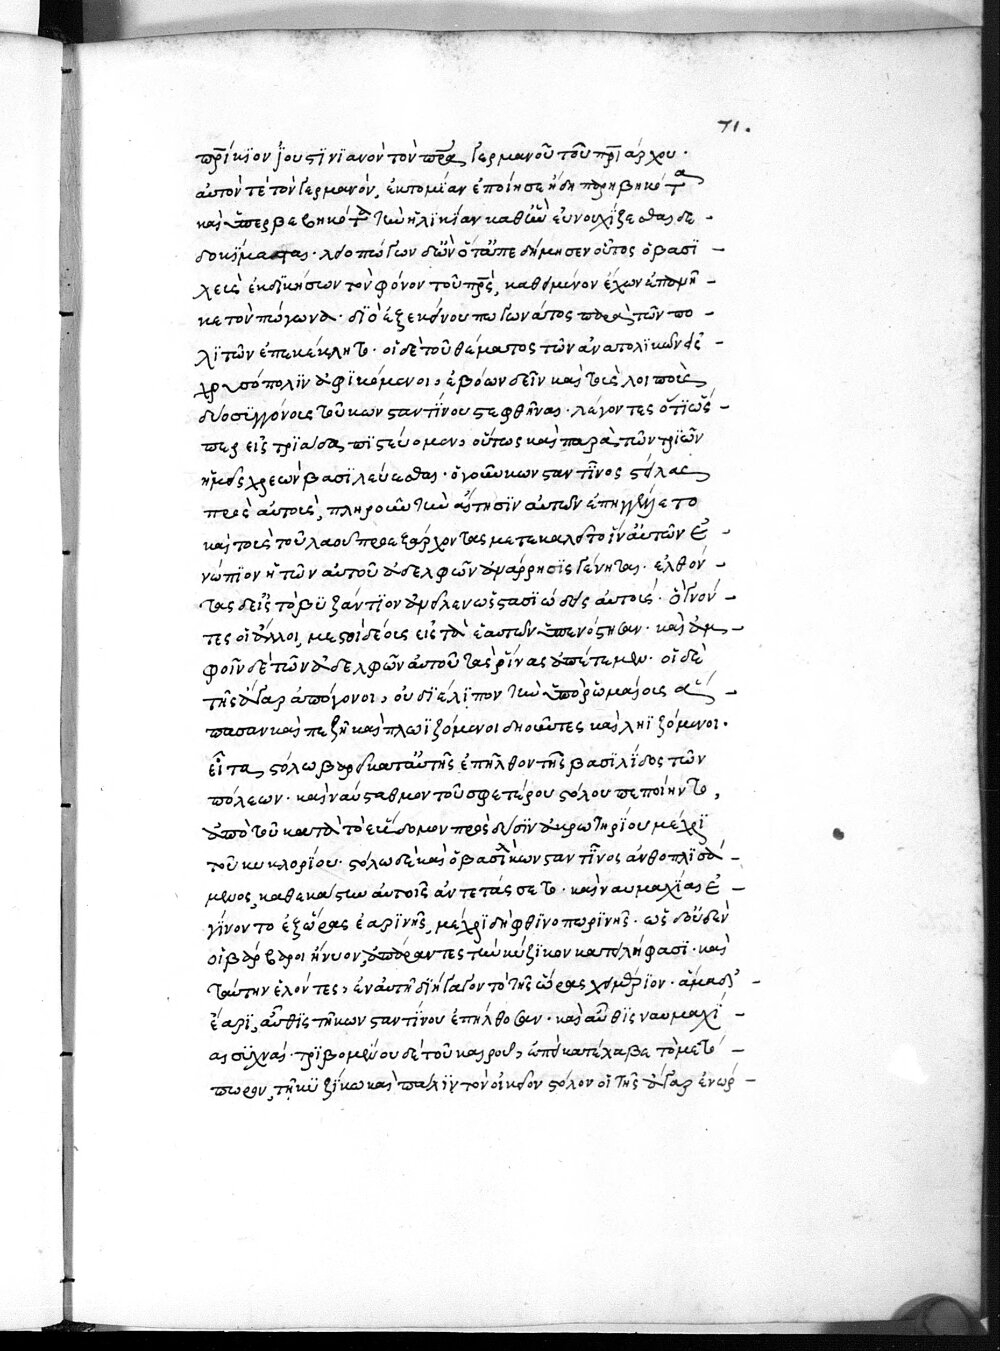 71.
πρίκιον ἰουστινιανὸν τὸν πρα Γερμανοῦ τοῦ πριάρχου·
αὐτόν τε τὸν Γερμανόν, ἐκτομίαν ἐποίησε ἤδη παρηβηκότα
καὶ ὑπερβεβηκότα τὴν ἡλικίαν καθ' ἣν εὐνουχίζεσθαι δε
δοκίμασται· λέγων
ὅτ' ἀπεδήμησεν οὗτος ὁ βασι
λεὺς ἐκδικήσων τὸν φόνον τοῦ πρς, καθειμένον ἔχων ἐπανῆ
κε τὸν πώγωνα· διὸ ἐξ ἐκείνου πωγωνάτος παρὰ τῶν πο
λιτῶν ἐπεκέκλητο· οἱ δὲ τοῦ θέματος τῶν ἀνατολικῶν ἐς
χρυσόπολιν ἀφικόμενοι, ἐβόων δεῖν καὶ τοὺς λοιποὺς
δύο συγγόνους τοῦ κωνσταντίνου στεφθῆναι· λέγοντες ὅτι ὥσ
περ εἰς τριάδα πιστεύομεν, οὕτως καὶ παρὰ τῶν τριῶν
ἡμᾶς χρεὼν βασιλεύεσθαι· ὁ γοῦν κωνσταντῖνος στείλας
πρὸς αὐτοὺς, πληροῦν τὴν αἴτησιν αὐτῶν ἐπηγγέλλετο
καὶ τοὺς τοῦ λαοῦ προεξάρχοντας μετεκαλεῖτο ἵν' αὐτῶν ἐ
νώπιον ἡ τῶν αὐτοῦ ἀδελφῶν ἀνάρρησις γένηται· ἐλθόν
τας δ' εἰς τὸ βυζάντιον ἀνεῖλεν ὡς στασιώδεις αὐτούς· ὃ γνόν
τες οἱ ἄλλοι, μετὰ δέους εἰς τὰ ἑαυτῶν ὑπενόστησαν· καὶ ἀμ
φοῖν δὲ τῶν ἀδελφῶν αὐτοῦ τὰς ῥῖνας ἀπέτεμεν· οἱ δὲ
τῆς ἄγαρ ἀπόγονοι, οὐ διέλιπον τὴν ὑπὸ ῥωμαίοις
πᾶσαν καὶ πεζῇ καὶ πλωϊζόμενοι δηοῦντες καὶ ληϊζόμενοι·
εἶτα στόλῳ βαρεῖ κατ' αὐτῆς ἐπῆλθον τῆς βασιλίδος τῶν
πόλεων· καὶ ναύσταθμον τοῦ σφετέρου στόλου πεποίηντο,
ἀπὸ τοῦ κατὰ τὸ ἕβδομον πρὸς δύσιν ἀκρωτηρίου μέχρι
τοῦ κυκλοβίου· στόλῳ δὲ καὶ ὁ βασιλεὺς κωνσταντῖνος ἀνθοπλισά
μενος, καθ' ἑκάστην αὐτοῖς ἀντετάσσετο· καὶ ναυμαχίαι ἐ
γίνοντο ἐξ ὥρας ἐαρινῆς, μέχρι δὴ φθινοπωρινῆς· ὡς δ' οὐδὲν
οἱ βάρβαροι ἤνυον, ἀπάραντες τὴν κύζικον κατειλήφασι· καὶ
ταύτην ἑλόντες, ἐν αὐτῇ διήγαγον τὸ τῆς ὥρας χειμέριον· ἅμα δ'
ἔαρι, αὖθις τῇ κωνσταντίνου ἐπῆλθοσαν· καὶ αὖθις ναυμαχί
αι συχναί· τριβομένου δὲ τοῦ καιροῦ, ἐπεὶ κατέλαβε τὸ μετό
πωρον, τῇ κυζίκῳ καὶ πάλιν τὸν οἰκεῖον στόλον οἱ τῆς ἄγαρ ἐνώρ